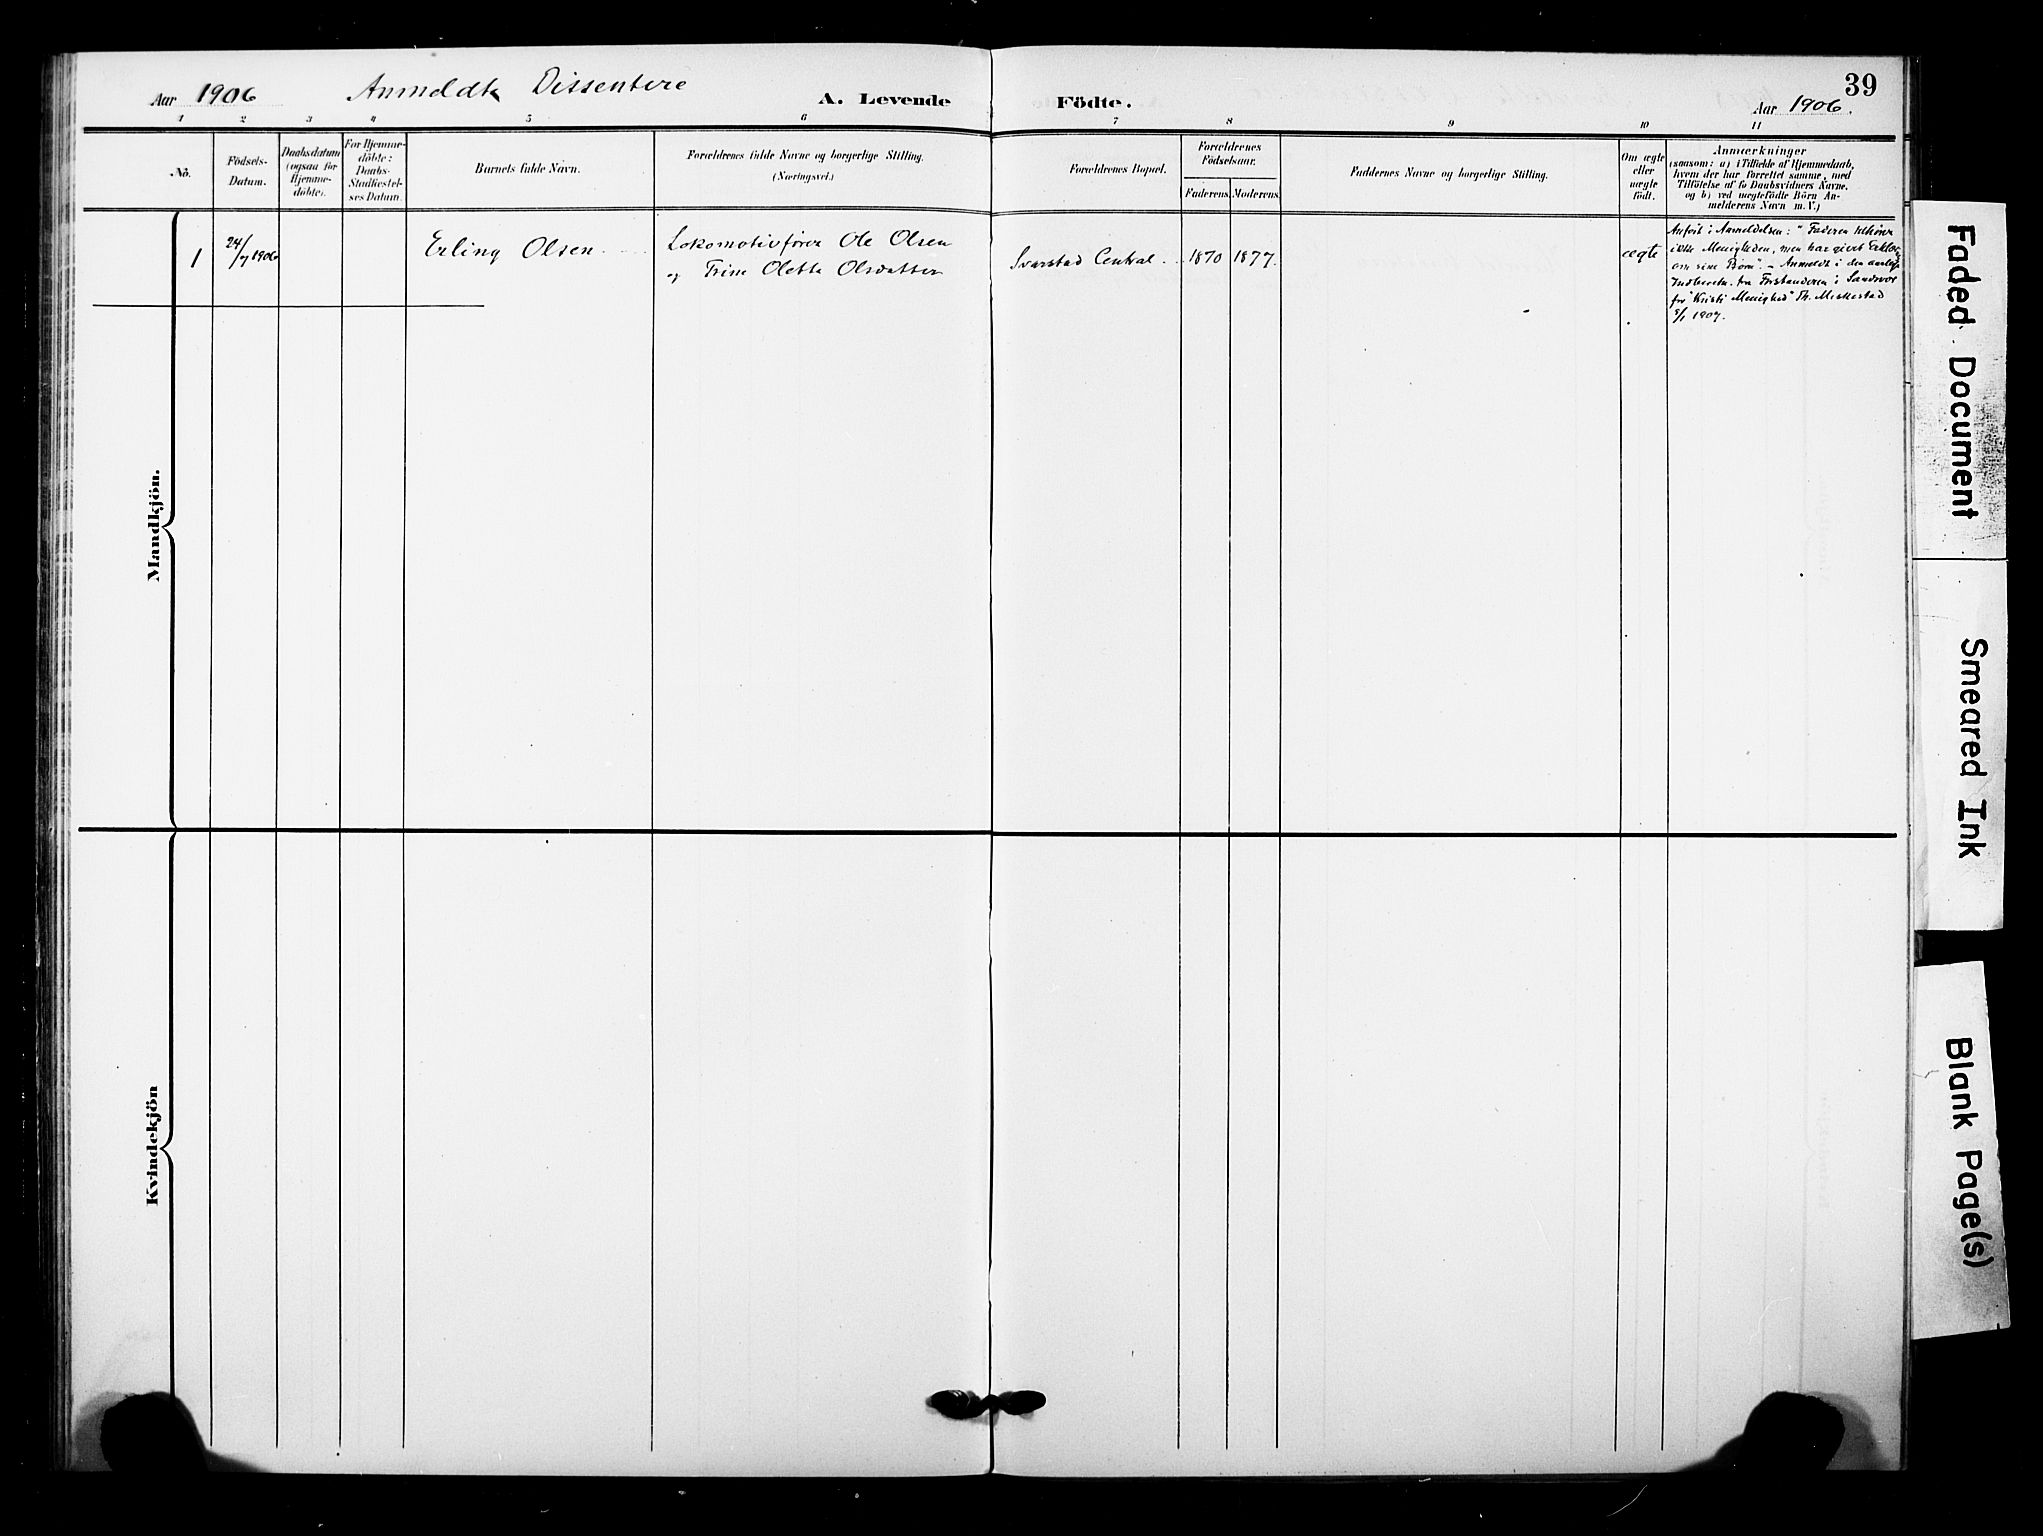 Aar 1906 Anmeldte Dissentere A. Levende Födte. Aar 1906.
39
1 2 3 4 5 6 7 8 9 10 11
No.
Födsels-
Datum.
Daabsdatum
(ogsaa for
Hjemme-
döbte).
For Hjemme-
döbte:
Daabs-
Stadfæstel-
ses Datum.
Barnets fulde Navn.
Forældrenes fulde Navne og borgerlige Stilling.
(Næringsvei.)
Forældrenes Bopæl.
Forældrenes
Födselsaar.
Faderens. Moderens.
Faddernes Navne og borgerlige Stilling.
Om ægte
eller
uægte
födt.
Anmærkninger
(saasom: a) i Tilfælde af Hjemmedaab,
hvem der har forrettet samme, med
Tilföielse af to Daabsvidners Navne.
og b) ved uægtefödte Börn An-
melderens Navn m. V.)
Mandkjön.
1
24/7 1906
Erling Olsen
Lokomotivfører Ole Olsen
og Trine Olette Olsdatter
Svarstad Central
1870
1877
ægte
Anført i Anmeldelsen: "Faderen tilhører
ikke Menigheden, men har givet
om sine Børn". - Anmeldt i den
Indberetn. fra Forstanderen i
for "Kristi Menighed" Th.
5/1 1907.
Kvindekjön
Faded Document
Smeared Ink
Blank Page(s)